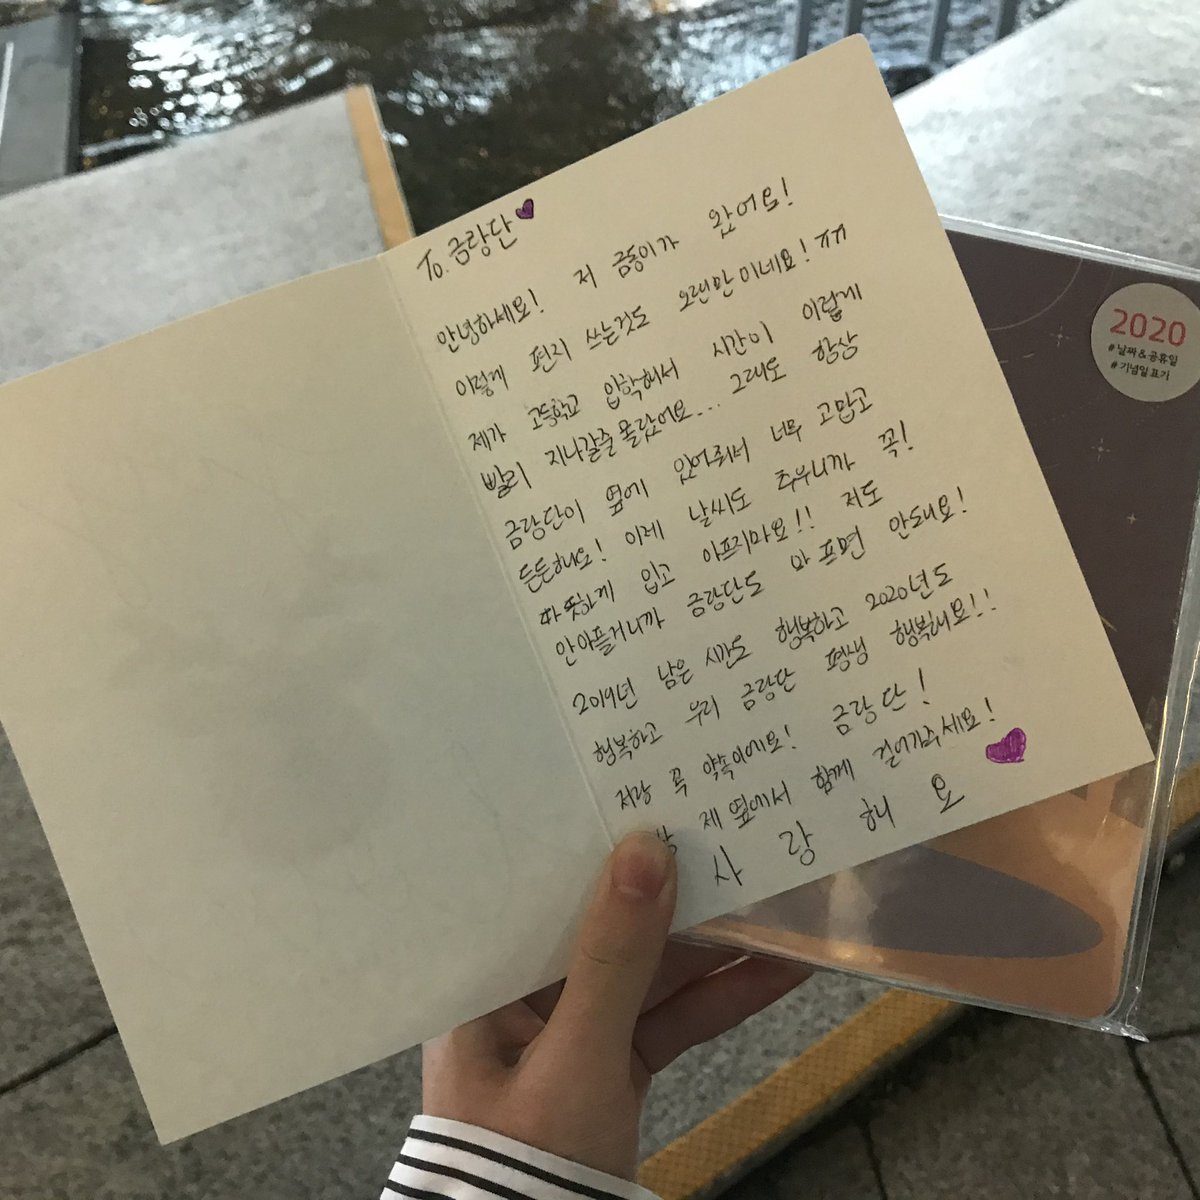 To. 금랑단
안녕하세요! 저 금동이가 왔어요!
이렇게 편지 쓰는것도 오랜만이네요! ㅠㅠ
제가 고등학교 입학해서 시간이 이렇게
빨리 지나갈줄 몰랐어요... 그래도 항상
금랑단이 옆에 있어줘서 너무 고맙고
든든해요! 이제 날씨도 추우니까 꼭!
따뜻하게 입고 아프지마요!! 저도
안아플거니까 금랑단도 아프면 안돼요!
2019년 남은 시간도 행복하고 2020년도
행복하고 우리 금랑단 평생 행복해요!!
저랑 꼭 약속이에요! 금랑단!
제 옆에서 함께 걸어가주세요!
사랑해요
2020
#날짜&공휴일
#기념일 표기